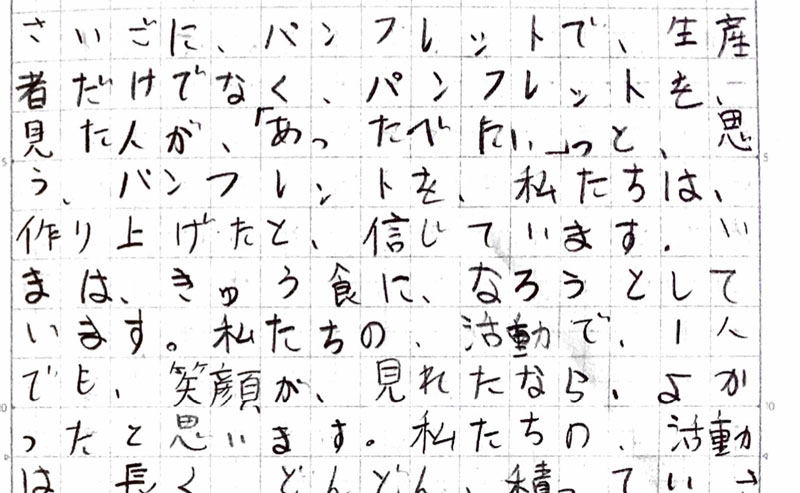 さいごに、パンフレットで、生産
者だけでなく、パンフレットを、
見た人が、「あったべたい。」っと、思
う、パンフレットを、私たちは、
作り上げたと、信じています。い
まは、きゅう食に、なろうとして
います。私たちの、活動で、1人
でも、笑顔が、見れたなら、よか
ったと思います。私たちの、活動
は、長く、どんどん、積っていき